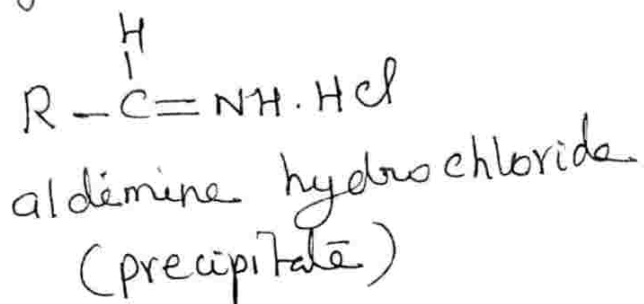 H
R - C = NH . HCl
aldimine hydrochloride
(precipitate)